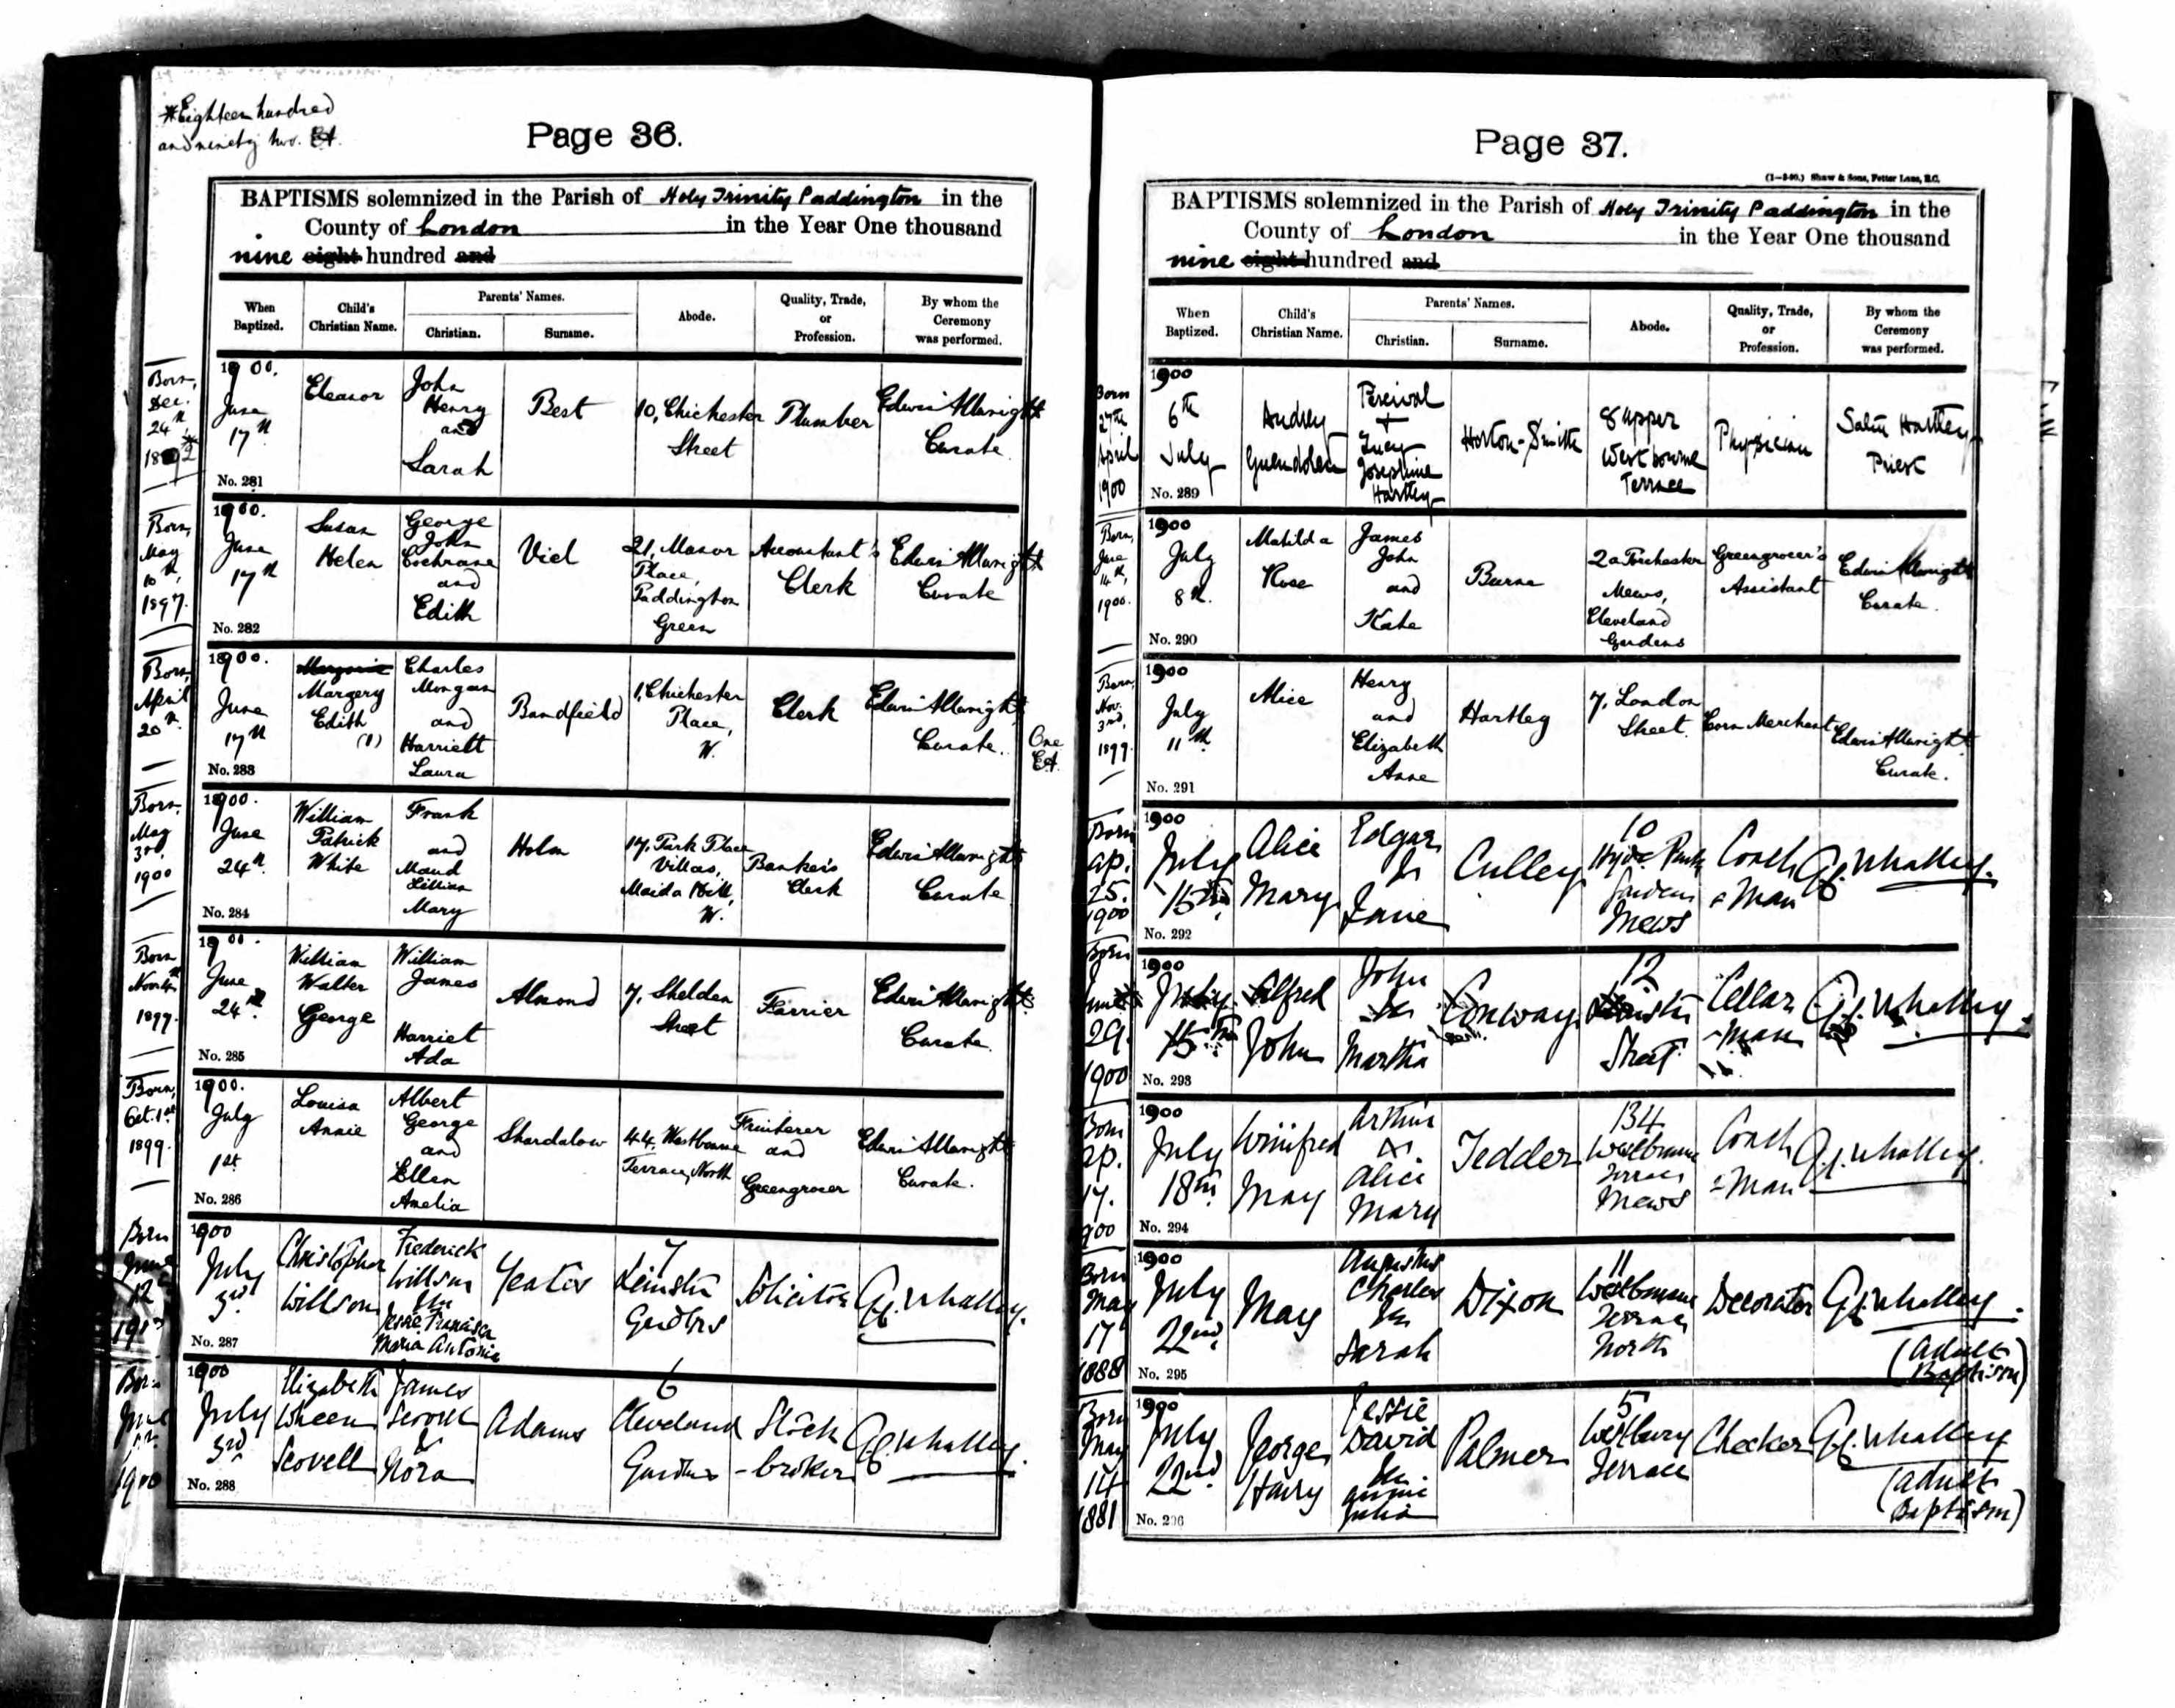 *Eighteen hundred
and ninety two. EA.
Page 36.
BAPTISMS solemnized in the Parish of Holy Trinity Paddington in the
County of London in the Year One thousand
nine eight hundred and
When Baptized.
Child's Christian Name.
Parents' Names.
Christian.
Surname.
Abode.
Quality, Trade, or Profession.
By whom the Ceremony was performed.
Born, Dec. 24th, 1892*
1900. June 17th
No. 281
Eleanor
John Henry and Sarah
Best
10, Chichester Street
Plumber
Edwin Allwright Curate.
Born, May 10th, 1897.
1900. June 17th
No. 282
Susan Helen
George John Cochrane and Edith
Viel
21, Manor Place, Paddington Green
Accountant's Clerk
Edwin Allwright Curate
Born, April 20th
1900. June 17th
No. 283
Marjorie Margery Edith (1)
Charles Morgan and Harriett Laura
Bandfield
1, Chichester Place, W.
Clerk
Edwin Allwright Curate.
One EA.
Born, May 3rd, 1900
1900. June 24th
No. 284
William Patrick White
Frank and Maud Lillian Mary
Holm
17, Park Place Villas, Maida Hill, W.
Banker's Clerk
Edwin Allwright Curate.
Born 1899.
1900. June 24th
No. 285
William Walter George
William James Harriet Ada
Almond
7, Sheldon Street
Farrier
Edwin Allwright Curate.
Born, Oct. 1st 1899.
1900. July 1st
No. 286
Louisa Annie
Albert George and Ellen Amelia
Shardalow
44, Westbourne Terrace, North
Fruiterer and Greengrocer
Edwin Allwright Curate.
Born June 12
1900 July 3rd
No. 287
Christopher Willson
Frederick Willson & Jessie Francisca Maria Antonia
Yeates
7 Leinster Gardens
Solicitor
G. Whalley.
Born 1900
1900 July 3rd
No. 288
Elizabeth Wheen Scovell
James & Nora
Adams
6 Cleveland Gardens
Stock-broker
G. Whalley.
Page 37.
(1—3-00.) Shaw & Sons, Fetter Lane, E.C.
BAPTISMS solemnized in the Parish of Holy Trinity Paddington in the
County of London in the Year One thousand
nine eight hundred and
When Baptized.
Child's Christian Name.
Parents' Names.
Christian.
Surname.
Abode.
Quality, Trade, or Profession.
By whom the Ceremony was performed.
Born 27th April 1900
1900 6th July
No. 289
Audrey Guendolen
Percival + Lucy Josephine Hartley
Horton-Smith
8 Upper Westbourne Terrace
Physician
Hartley Priest
Born, June 14th, 1900.
1900 July 8th.
No. 290
Matilda Rose
James John and Kate
Burne
2a Porchester Mews, Cleveland Gardens
Greengrocer's Assistant
Edwin Allwright Curate.
Born, Nov. 3rd, 1899
1900 July 11th
No. 291
Alice
Henry and Elizabeth Anne
Hartley
7, London Street.
Corn Merchant
Edwin Allwright. Curate.
Born Ap. 25. 1900
1900 July 15th
No. 292
Alice Mary
Edgar & Jane
Culley
10 Hyde Park Gardens Mews
Coach-Man
G. Whalley.
Born June 29. 1900
1900 July 15th
No. 293
Alfred John
John & Martha
Conway
12 Street
Cellar-Man
G. Whalley.
Born Ap. 17. 1900
1900 July 18th
No. 294
Winifred May
Arthur & Alice Mary
Tedder
134 Westbourne Terrace Mews
Coach-Man
G. Whalley.
Born May 17 1888
1900 July 22nd
No. 295
May
Augustus Charles & Sarah
Dixon
11 Westbourne Terrace North
Decorator
G. Whalley.
(Adult Baptism)
Born May 14 1881
1900 July 22nd
No. 296
George Harry
Jessie David & Annie Julia
Palmer
5 Westbury Terrace
Checker
G. Whalley
(Adult Baptism)